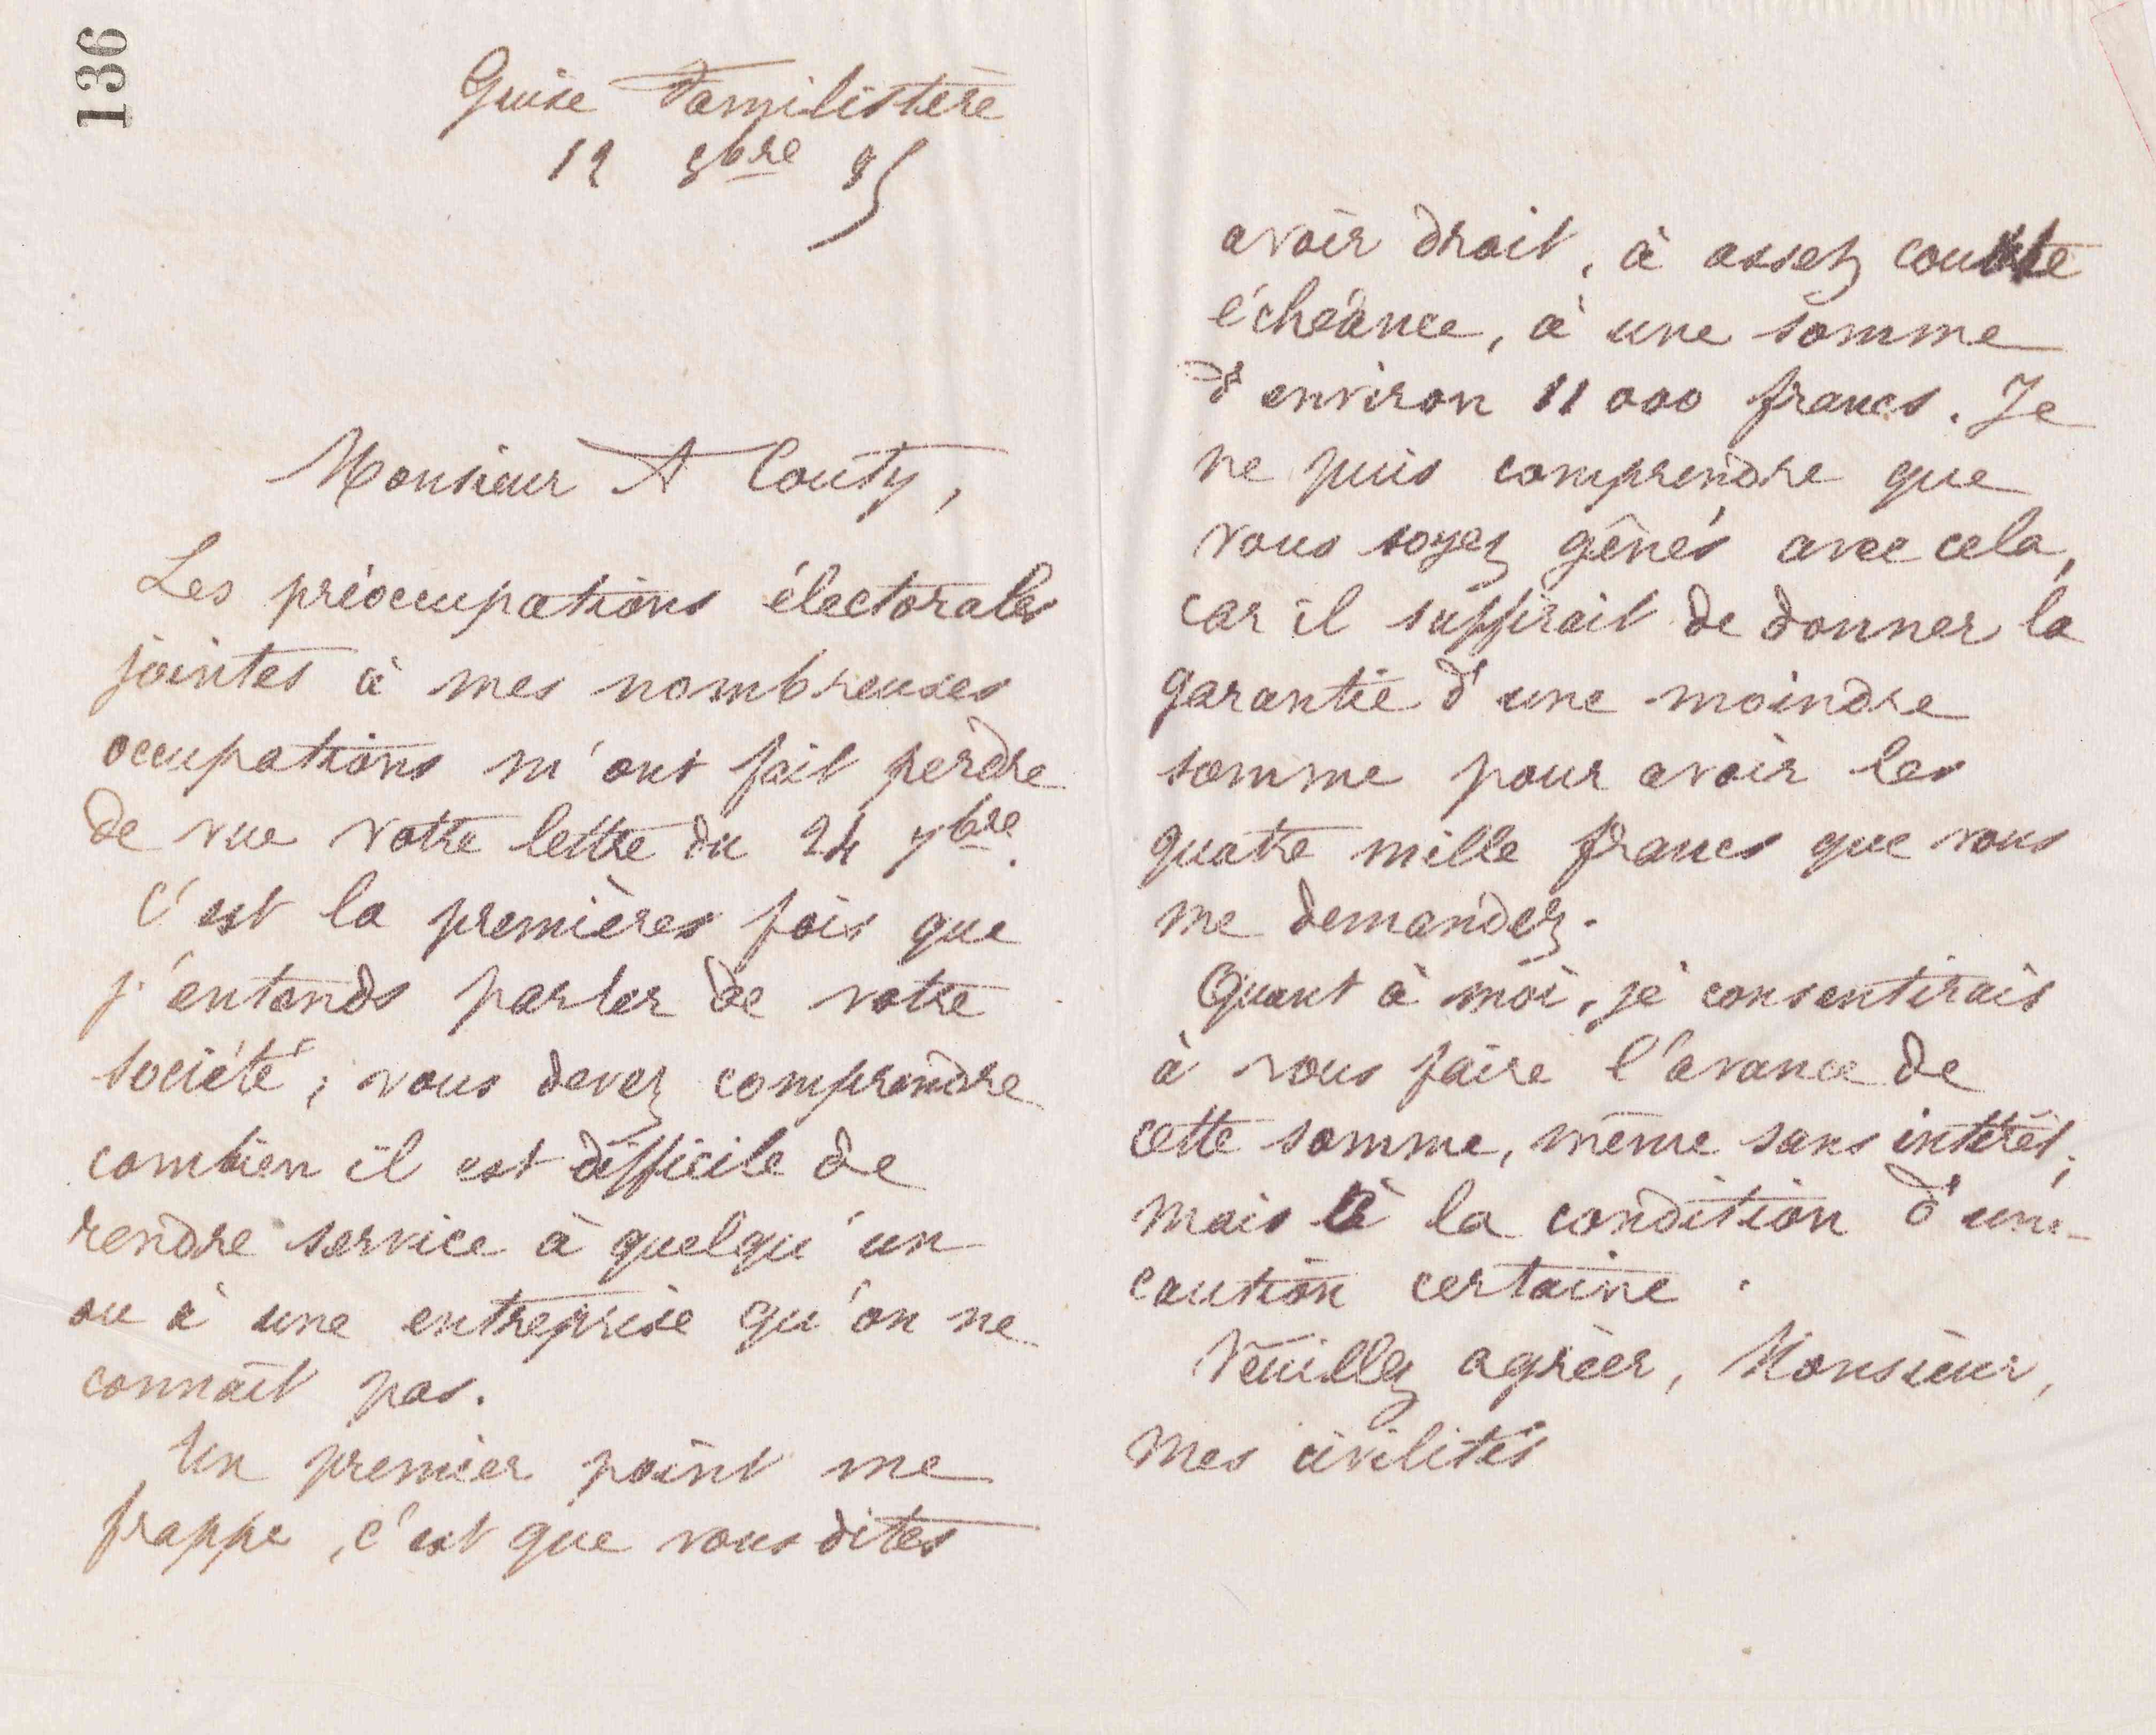 136
Guise Familistère
12 8bre 85
Monsieur A Couty,
Les préoccupations électorales
jointes à mes nombreuses
occupations m'ont fait perdre
de vue votre lettre du 24 7bre.
C'est la premières fois que
j'entends parler de votre
société ; vous devez comprendre
combien il est difficile de
rendre service à quelqu'un
ou à une entreprise qu'on ne
connaît pas.
Un premier point me
frappe, c'est que vous dites
avoir droit, à assez courte
échéance, à une somme
d'environ 11 000 francs. Je
ne puis comprendre que
vous soyez gênés avec cela,
car il suffirait de donner la
garantie d'une moindre
somme pour avoir les
quatre mille francs que vous
me demandez.
Quant à moi, je consentirais
à vous faire l'avance de
cette somme, même sans intérêt ;
mais à la condition d'une
caution certaine.
Veuillez agréer, Monsieur,
mes civilités